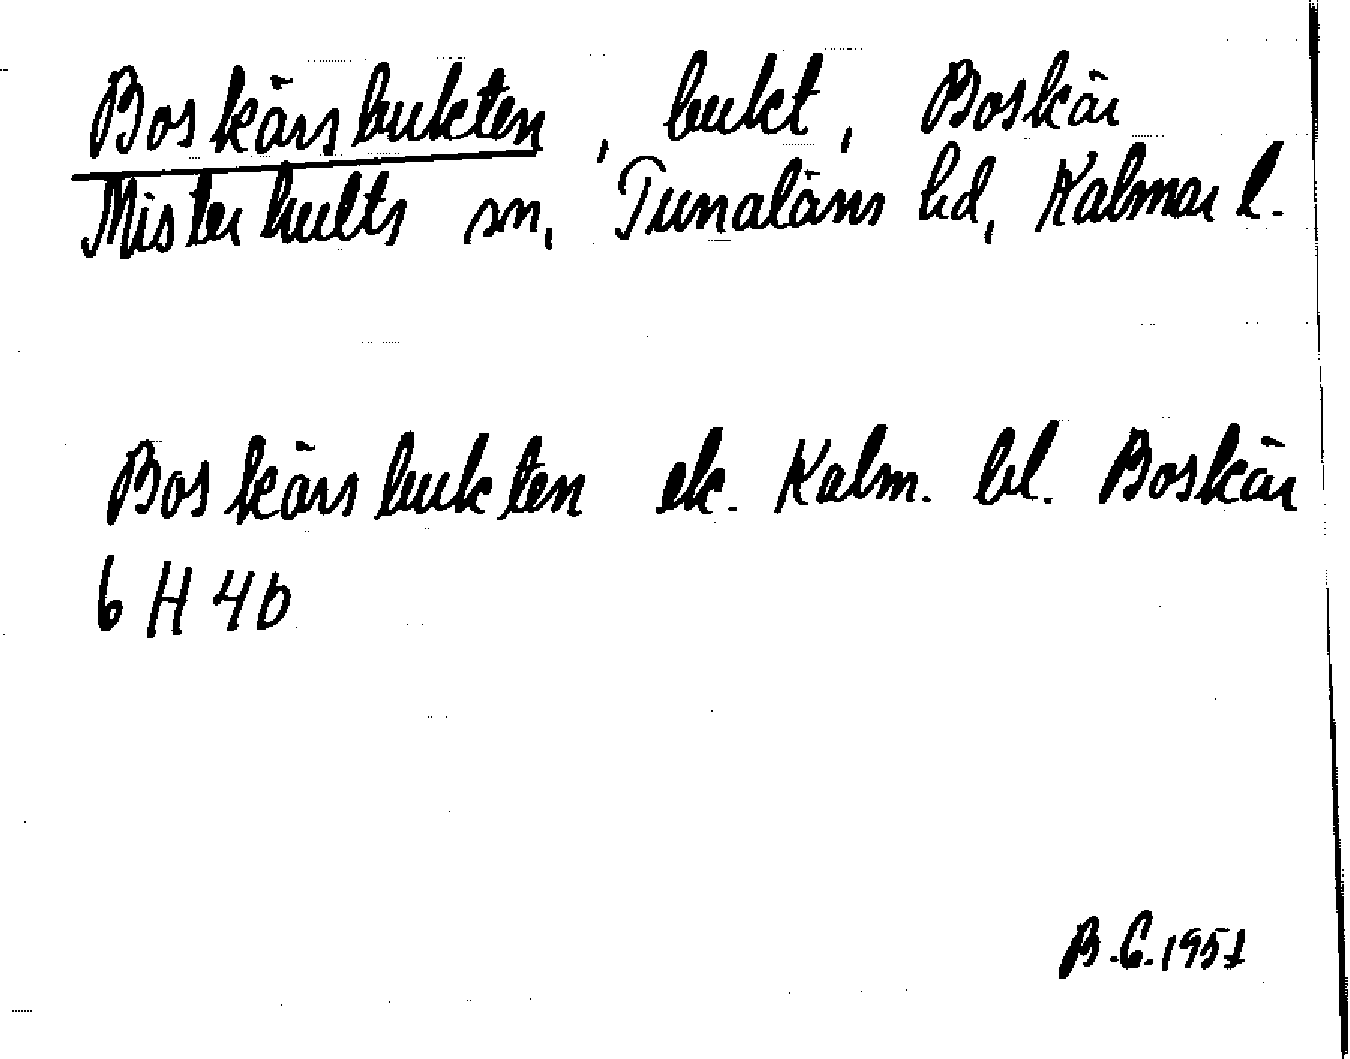 Boskärsbukten, bukt, Boskär
Misterhults sn, Tunaläns hd, Kalmar l.
Boskärsbukten ek. Kalm. bl. Boskär
6 H 4b
B.G. 1951